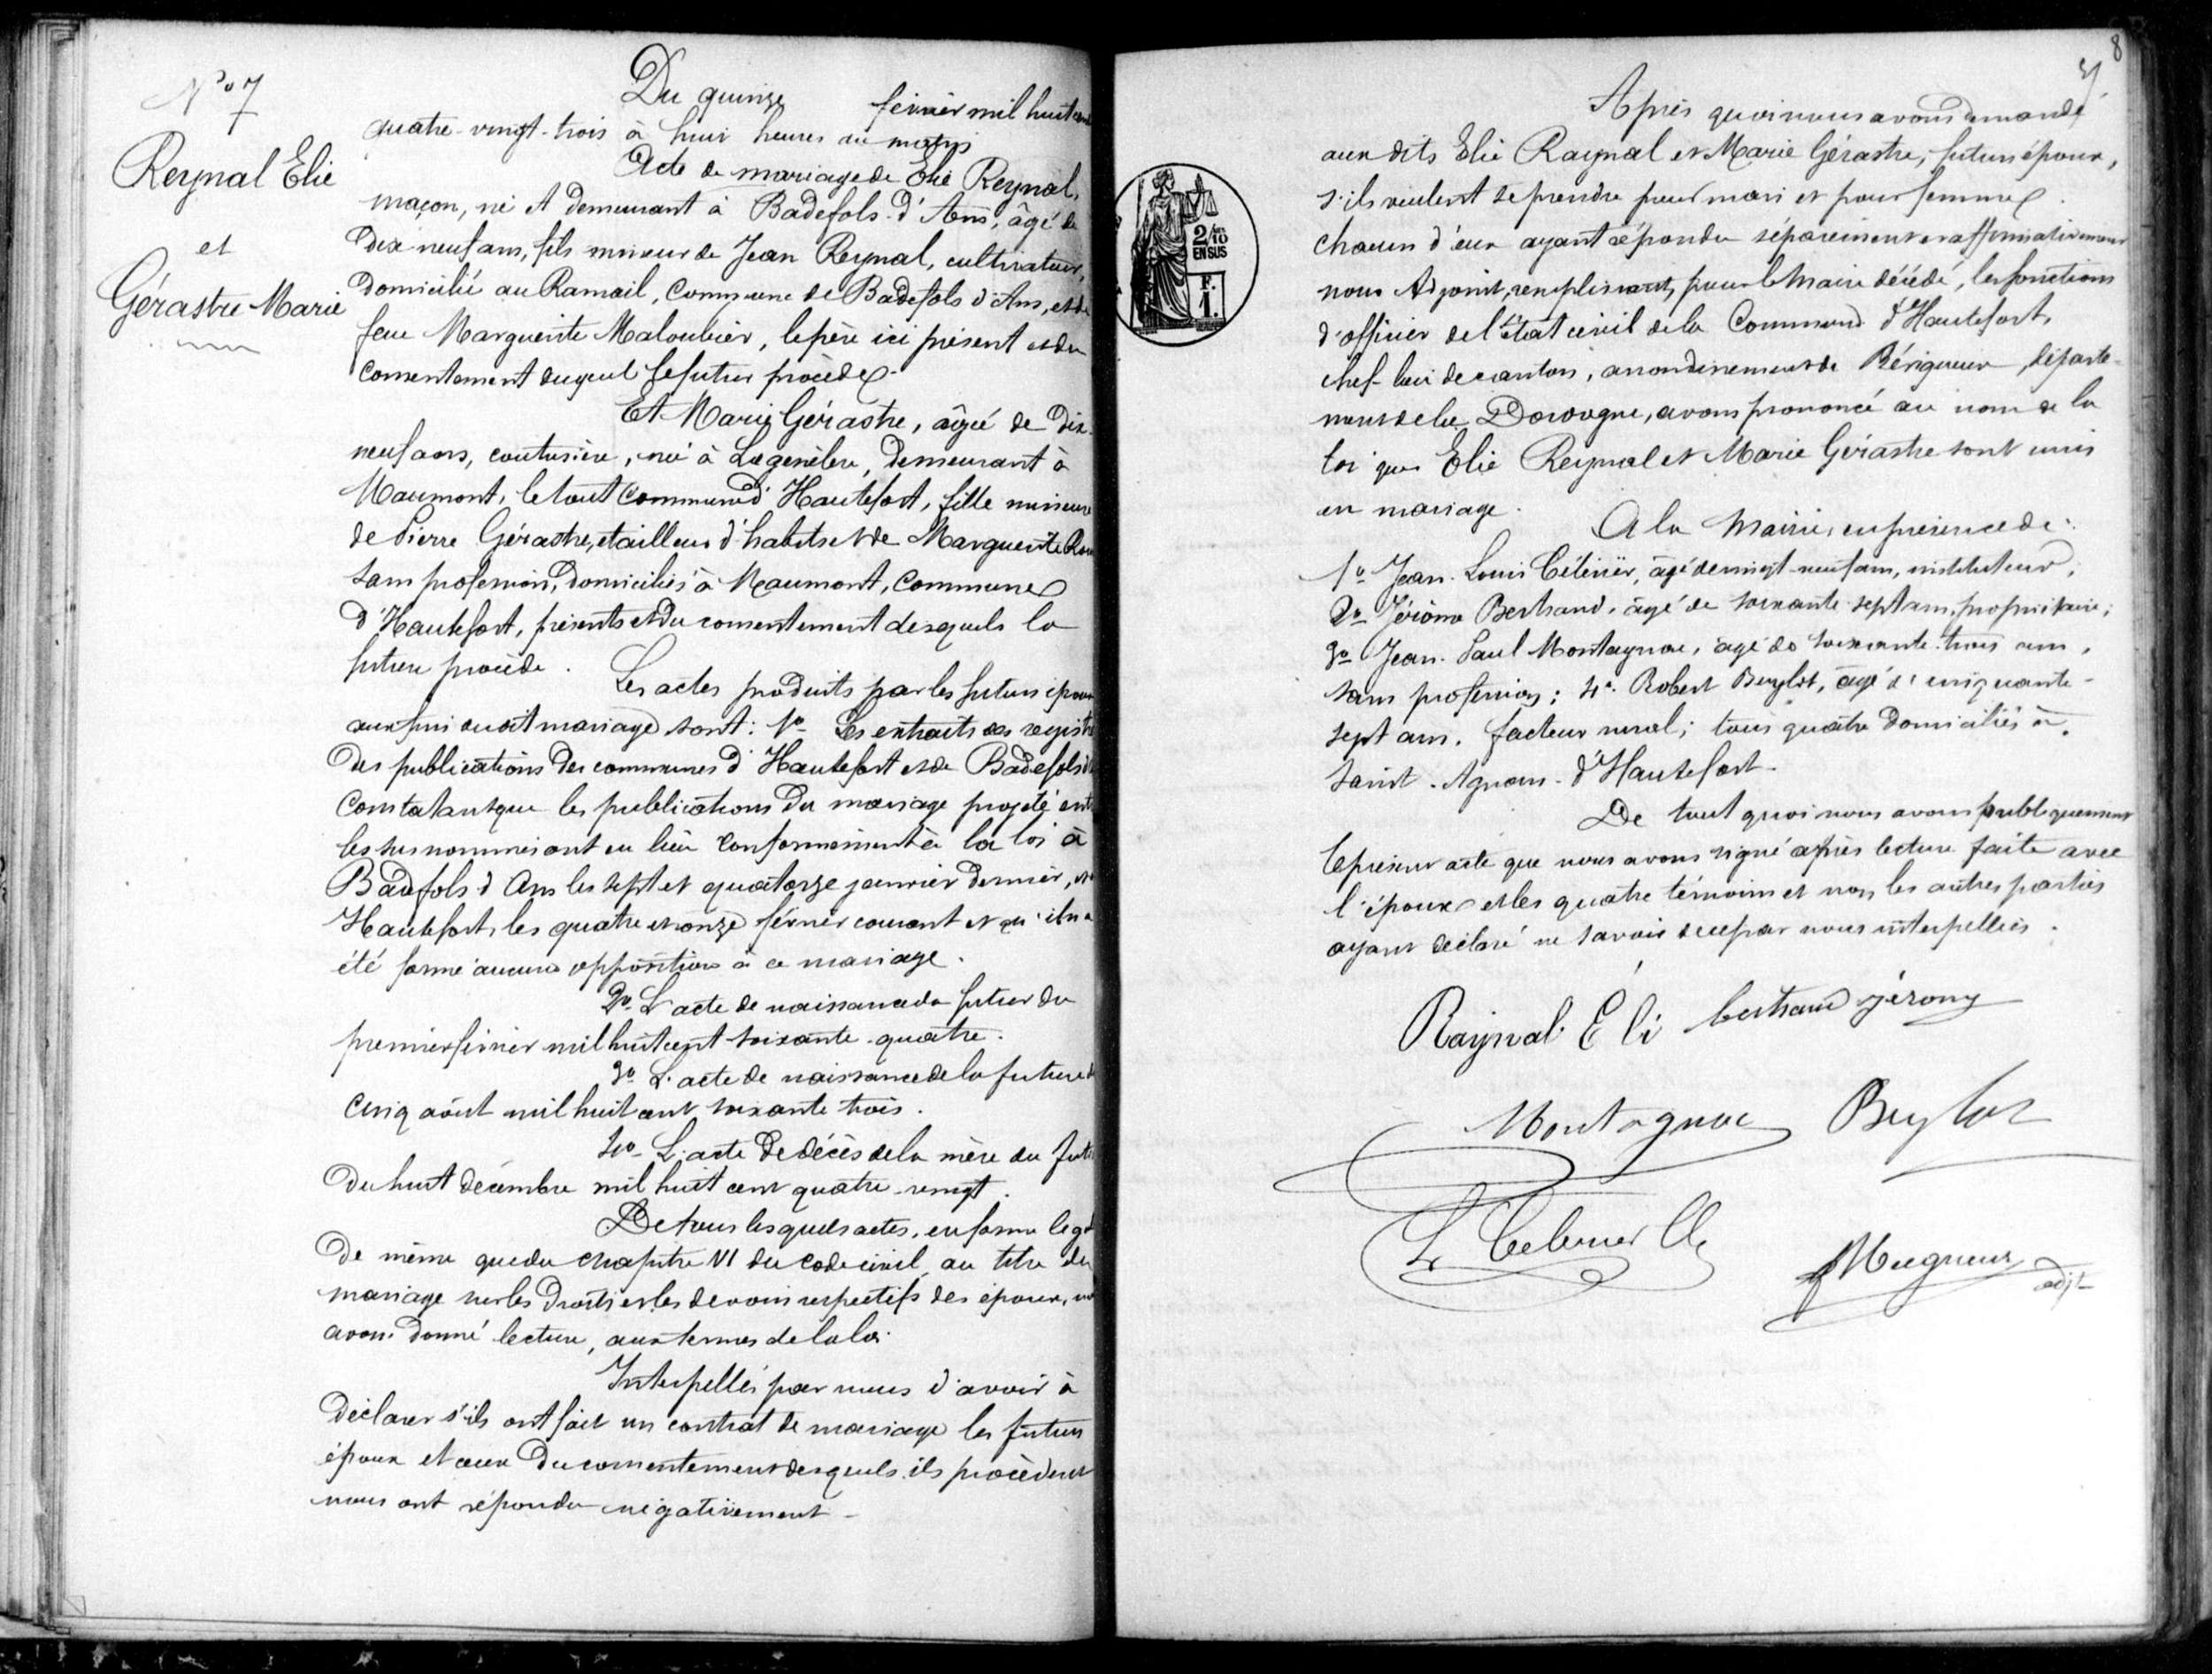 N° 7
Reynal Elie
et
Gérastre Marie
Du quinze février mil huit cent
quatre-vingt-trois à huit heures du matin
Acte de mariage de Elie Reynal,
maçon, né et demeurant à Badefols-d'Ans, âgé de
dix-neuf ans, fils mineur de Jean Reynal, cultivateur,
domicilié au Ramail, commune de Badefols d'Ans, et de
feue Marguerite Maloubier, le père ici présent et du
consentement duquel le futur procède.
Et Marie Gérastre, âgée de dix-
neuf ans, couturière, née à Lagenèbre, demeurant à
Maumont, le tout commune d'Hautefort, fille mineure
de Pierre Gérastre, tailleur d'habits et de Marguerite
sans profession, domiciliés à Maumont, commune
d'Hautefort, présents et du consentement desquels la
future procède.
Les actes produits par les futurs époux
aux fins dudit mariage sont : 1° Les extraits des registres
des publications des communes d'Hautefort et de Badefols d'
constatant que les publications du mariage projeté entre
les susnommés ont eu lieu conformément à la loi à
Badefols d'Ans les sept et quatorze janvier dernier, et
Hautefort, les quatre et onze février courant et qu'il n'a
été formé aucune opposition à ce mariage.
2° L'acte de naissance du futur du
premier février mil huit cent soixante-quatre.
3° L'acte de naissance de la future du
cinq août mil huit cent soixante trois.
4° L'acte de décès de la mère du futur
du huit décembre mil huit cent quatre-vingt.
De tous lesquels actes, en forme légale
de même que du chapitre VI du code civil, au titre du
mariage sur les droits et les devoirs respectifs des époux, nous
avons donné lecture, aux termes de la loi.
Interpellés par nous d'avoir à
déclarer s'ils ont fait un contrat de mariage les futurs
époux et ceux du consentement desquels ils procèdent
nous ont répondu négativement.
8
Après quoi nous avons demandé
aux dits Elie Raynal et Marie Gérastre, futurs époux,
s'ils veulent se prendre pour mari et pour femme.
chacun d'eux ayant répondu séparément et affirmativement
nous Adjoint, remplissant, pour le Maire décédé, les fonctions
d'officier de l'état civil de la commune d'Hautefort,
chef-lieu de canton, arrondissement de Périgueux, départe-
ment de la Dordogne, avons prononcé au nom de la
loi que Elie Reynal et Marie Gérastre sont unis
en mariage.
A la Mairie, en présence de :
1° Jean-Louis Célérier, âgé de vingt-neuf ans, instituteur;
2° Jérôme Bertrand, âgé de soixante-sept ans, propriétaire;
3° Jean-Paul Montagnac, âgé de soixante-trois ans,
sans profession; 4° Robert Beylot, âgé de cinquante-
sept ans, facteur rural; tous quatre domiciliés à
Saint-Agnan-d'Hautefort.
De tout quoi nous avons publiquement
le présent acte que nous avons signé après lecture faite avec
l'époux et les quatre témoins et non les autres parties
ayant déclaré ne savoir de ce par nous interpellées.
Raynal Eli bertrand jéromy
Montagnac Beylot
L. Celerier
Mugneur
adjt
2/10
EN SUS
F.
1.